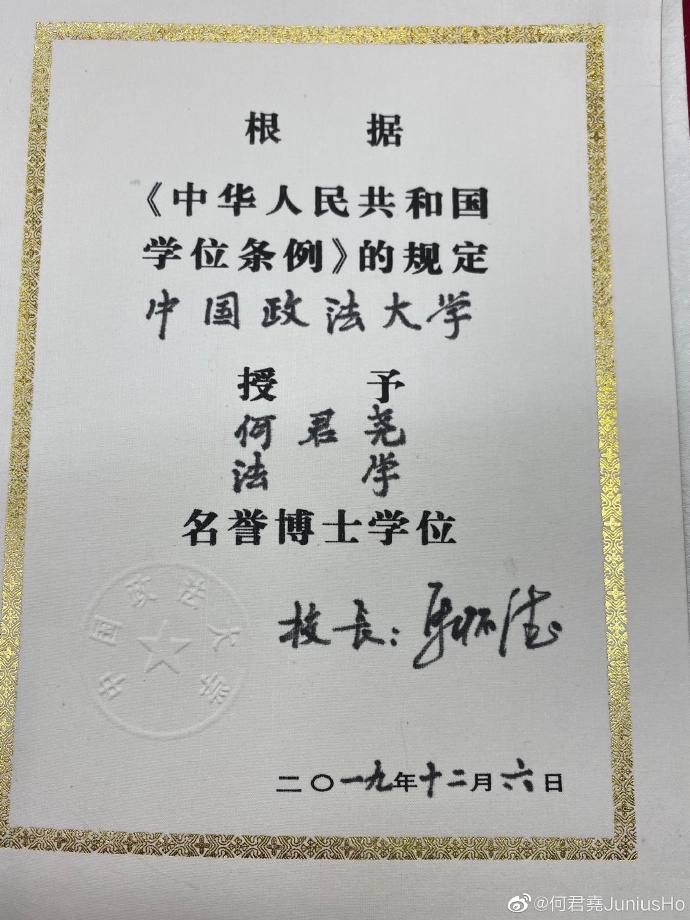 根据
《中华人民共和国
学位条例》的规定
中国政法大学
授予
何君尧
法学
名誉博士学位
中国政法大学
校长：马怀德
二〇一九年十二月六日
@何君堯JuniusHo